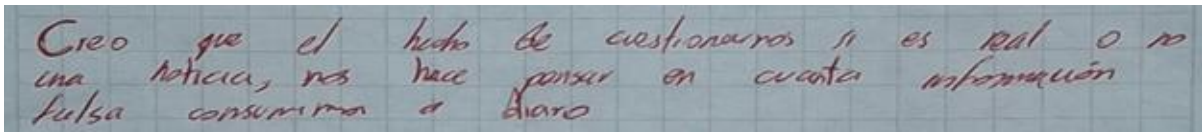 Creo que el hecho de cuestionarnos si es real o no
una noticia, nos hace pensar en cuanta información
falsa consumimos a diaro